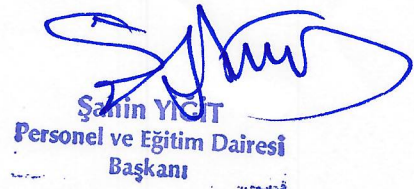 Şahin YİĞİT
Personel ve Eğitim Dairesi
Başkanı